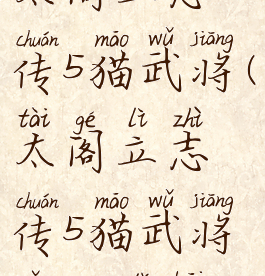 chuán māo wǔ jiāng
传5猫武将(
tài gé lì zhì
太阁立志
chuán māo wǔ jiāng
传5猫武将